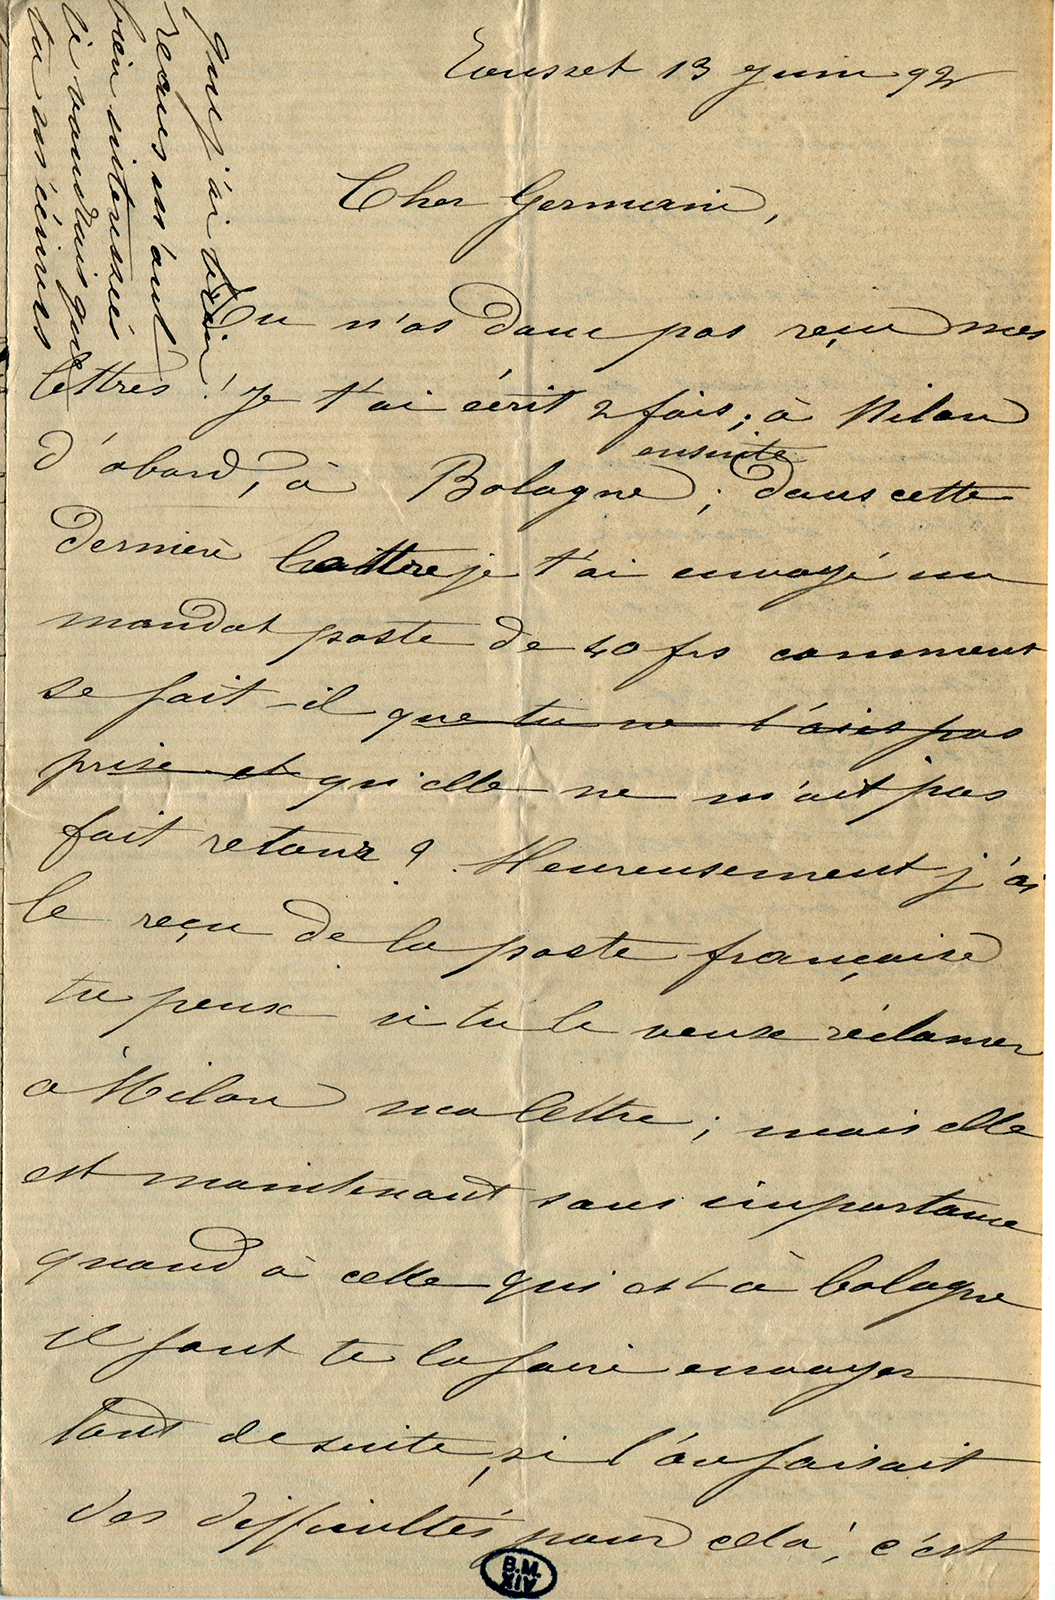 Tousset 13 juin 92
Cher Germain,
Tu n'as donc pas reçu mes
lettres ! Je t'ai écrit 2 fois ; à Milan
d'abord, à Bologne ensuite ; dans cette
dernière lettre je t'ai envoyé un
mandat poste de 40 frs comment
se fait-il que tu ne l'aies pas
prise et qu'elle ne m'ait pas
fait retour ? Heureusement j'ai
le reçu de la poste française
tu peux si tu le veux réclamer
a Milan ma lettre ; mais elle
est maintenant sans importance
quand à celle qui est à bologne
il faut te la faire envoyer
tout de suite, si l'on faisait
des difficultés pour cela, c'est
que j'ai bien
reçues m'ont
bien interessées
je voudrais que
tu m'écives
B.M.
AIX